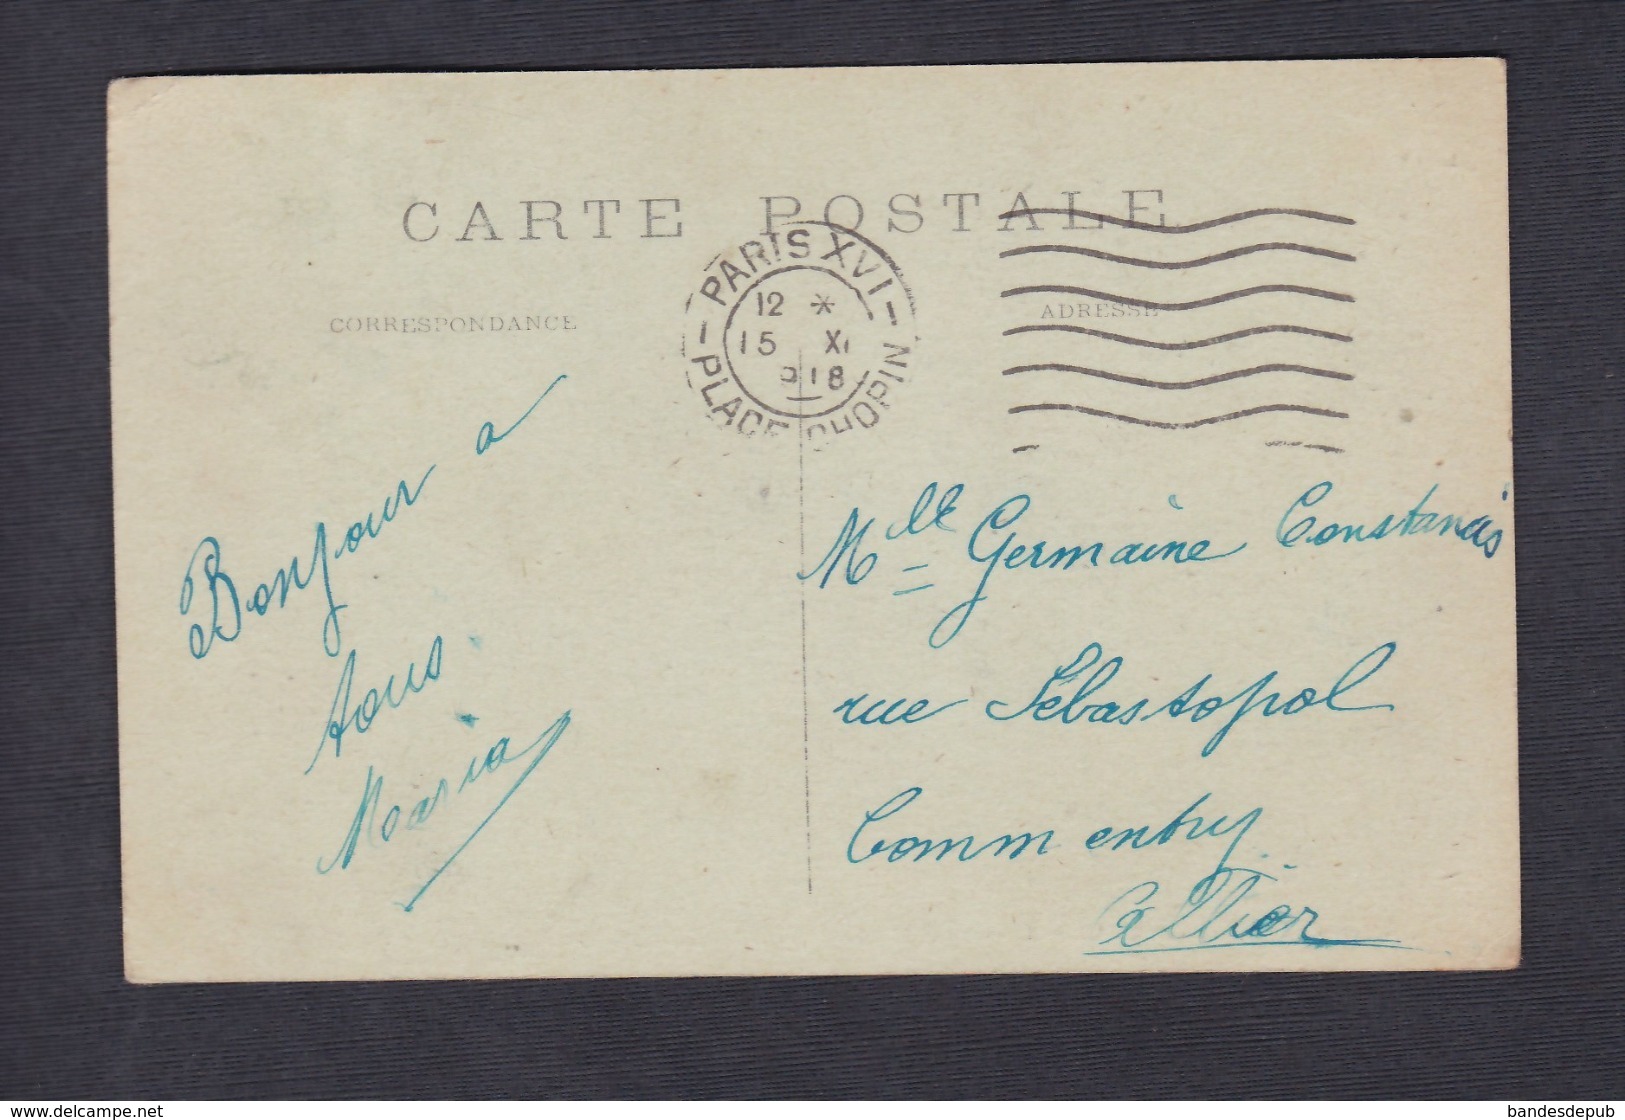 CARTE POSTALE
CORRESPONDANCE
ADRESSE
PARIS XVI
12 *
15 XI
918
PLACE CHOPIN
Bonjour a
tous
Maria
Mlle Germaine Constancis
rue Sébastopol
Commentry
Allier
www.delcampe.net
bandesdepub